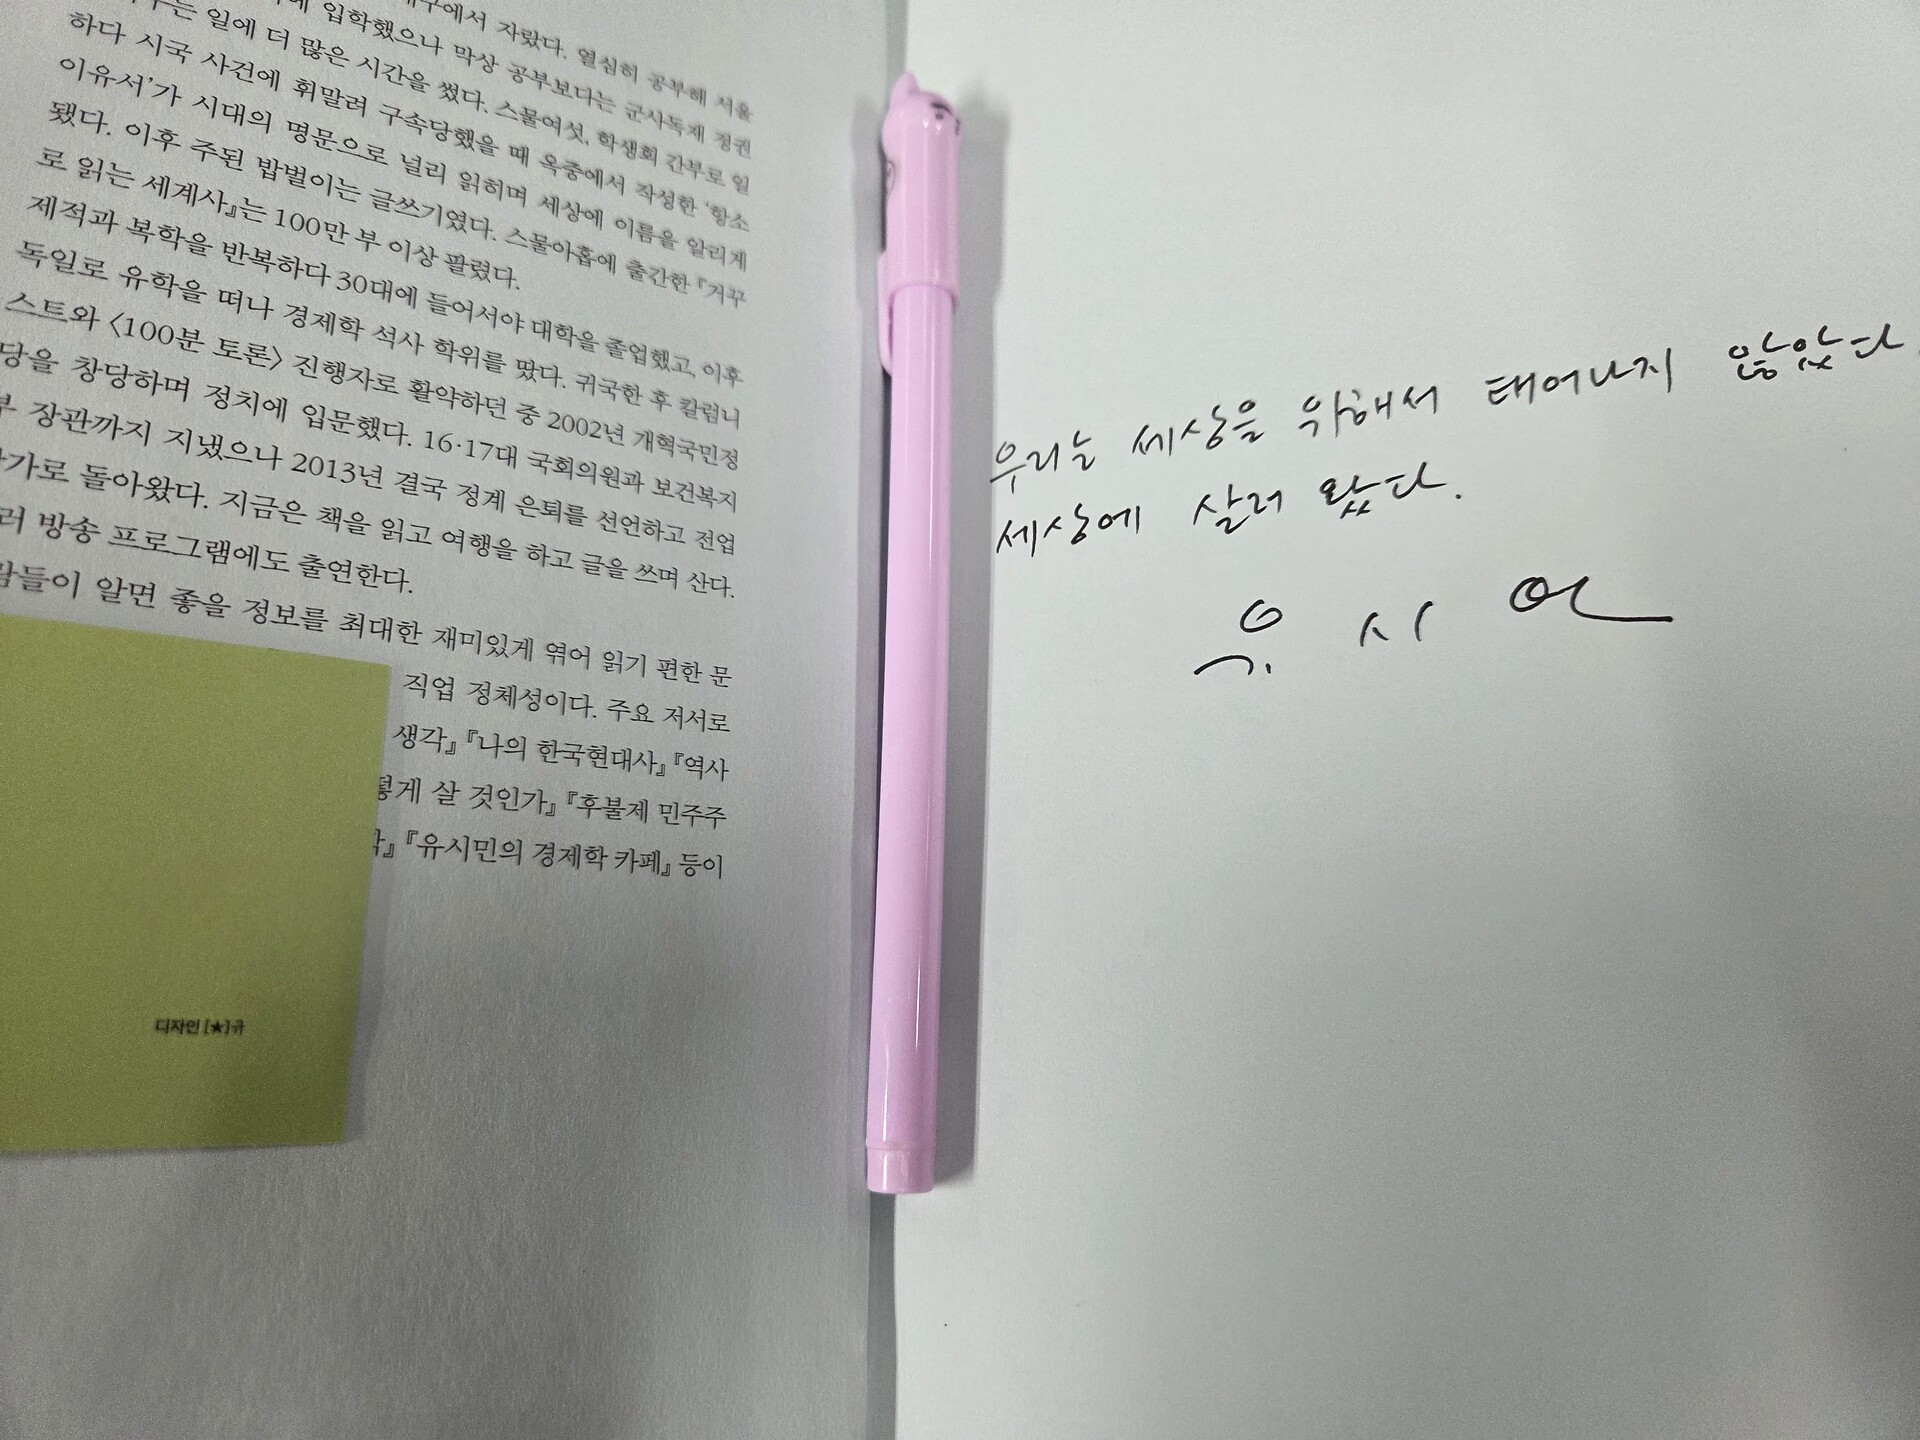 에서 자랐다. 열심히 공부해 서울
입학했으나 막상 공부보다는 군사독재 정권
는 일에 더 많은 시간을 썼다. 스물여섯, 학생회 간부로 일
하다 시국 사건에 휘말려 구속당했을 때 옥중에서 작성한 '항소
이유서'가 시대의 명문으로 널리 읽히며 세상에 이름을 알리게
됐다. 이후 주된 밥벌이는 글쓰기였다. 스물아홉에 출간한 『거꾸
로 읽는 세계사』는 100만 부 이상 팔렸다.
제적과 복학을 반복하다 30대에 들어서야 대학을 졸업했고, 이후
독일로 유학을 떠나 경제학 석사 학위를 땄다. 귀국한 후 칼럼니
스트와 〈100분 토론〉 진행자로 활약하던 중 2002년 개혁국민정
당을 창당하며 정치에 입문했다. 16·17대 국회의원과 보건복지
부 장관까지 지냈으나 2013년 결국 정계 은퇴를 선언하고 전업
가로 돌아왔다. 지금은 책을 읽고 여행을 하고 글을 쓰며 산다.
러 방송 프로그램에도 출연한다.
람들이 알면 좋을 정보를 최대한 재미있게 엮어 읽기 편한 문
직업 정체성이다. 주요 저서로
생각』 『나의 한국현대사』 『역사
떻게 살 것인가』 『후불제 민주주
』 『유시민의 경제학 카페』 등이
디자인 [★]규
우리는 세상을 위해서 태어나지 않았다.
세상에 살러 왔다.
유 시 민